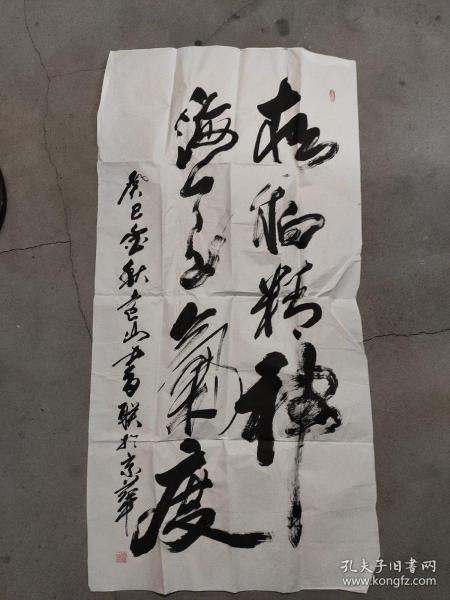 松柏精神
海天气度
癸巳金秋范山书联于京华
孔夫子旧书网
www.kongfz.com